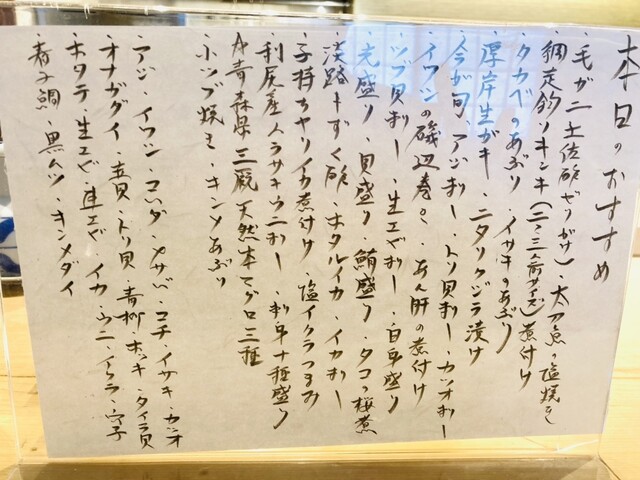 本日のおすすめ
・毛ガニ土佐酢ゼリがけ・太刀魚の塩焼き
網走釣りキンキ(二、三人前サイズ)煮付け
・タカベのあぶり・イサキのあぶり
・厚岸生ガキ・ニタリクジラ漬け
・今が旬・アジ刺し・トリ貝刺し・カツオ刺し
・イワシの磯辺巻き・あん肝の煮付け
・ツブ貝刺し・生エビ刺し・白身盛り
・光盛り・貝盛り・鮪盛り・タコの桜煮
・淡路もずく酢・ホタルイカ・イカ刺し
・子持ちヤリイカ煮付け・塩イクラつまみ
・利尻産ムラサキウニ刺し・刺身十種盛り
・青森県三厩天然本マグロ三種
・ホップ焼き・キンメあぶり
・アジ・イワシ・コハダ・メサバ・コチ・イサキ・カツオ
・オナガダイ・青貝・トリ貝・青柳・ホッキ・タイラ貝
・ホタテ・生エビ・車エビ・イカ・ウニ・イクラ・穴子
・春子鯛・黒ムツ・キンメダイ